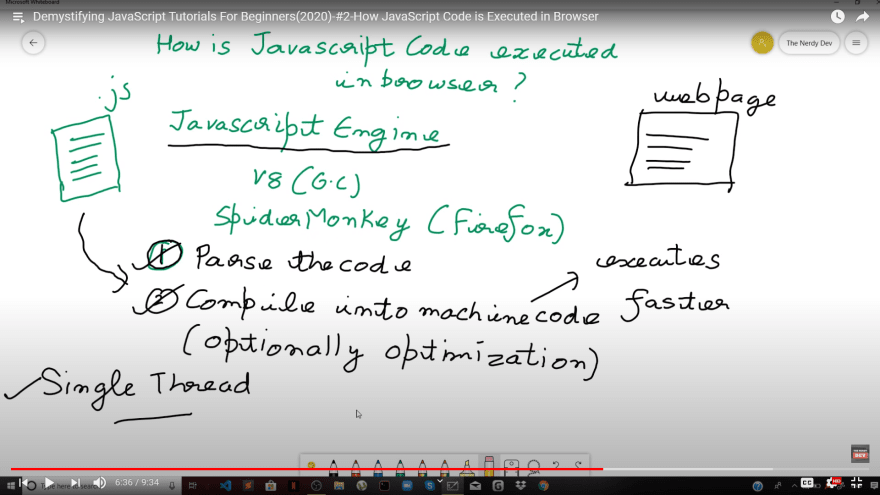 Microsoft Whiteboard
Demystifying JavaScript Tutorials For Beginners(2020)-#2-How JavaScript Code is Executed in Browser
The Nerdy Dev
How is Javascript Code executed
in browser ?
.js
webpage
Javascript Engine
V8 (G.C)
SpiderMonkey (Firefox)
1 Parse the code
executes
2 Compile into machine code
faster
(optionally optimization)
Single Thread
6:36 / 9:34
CC
HD